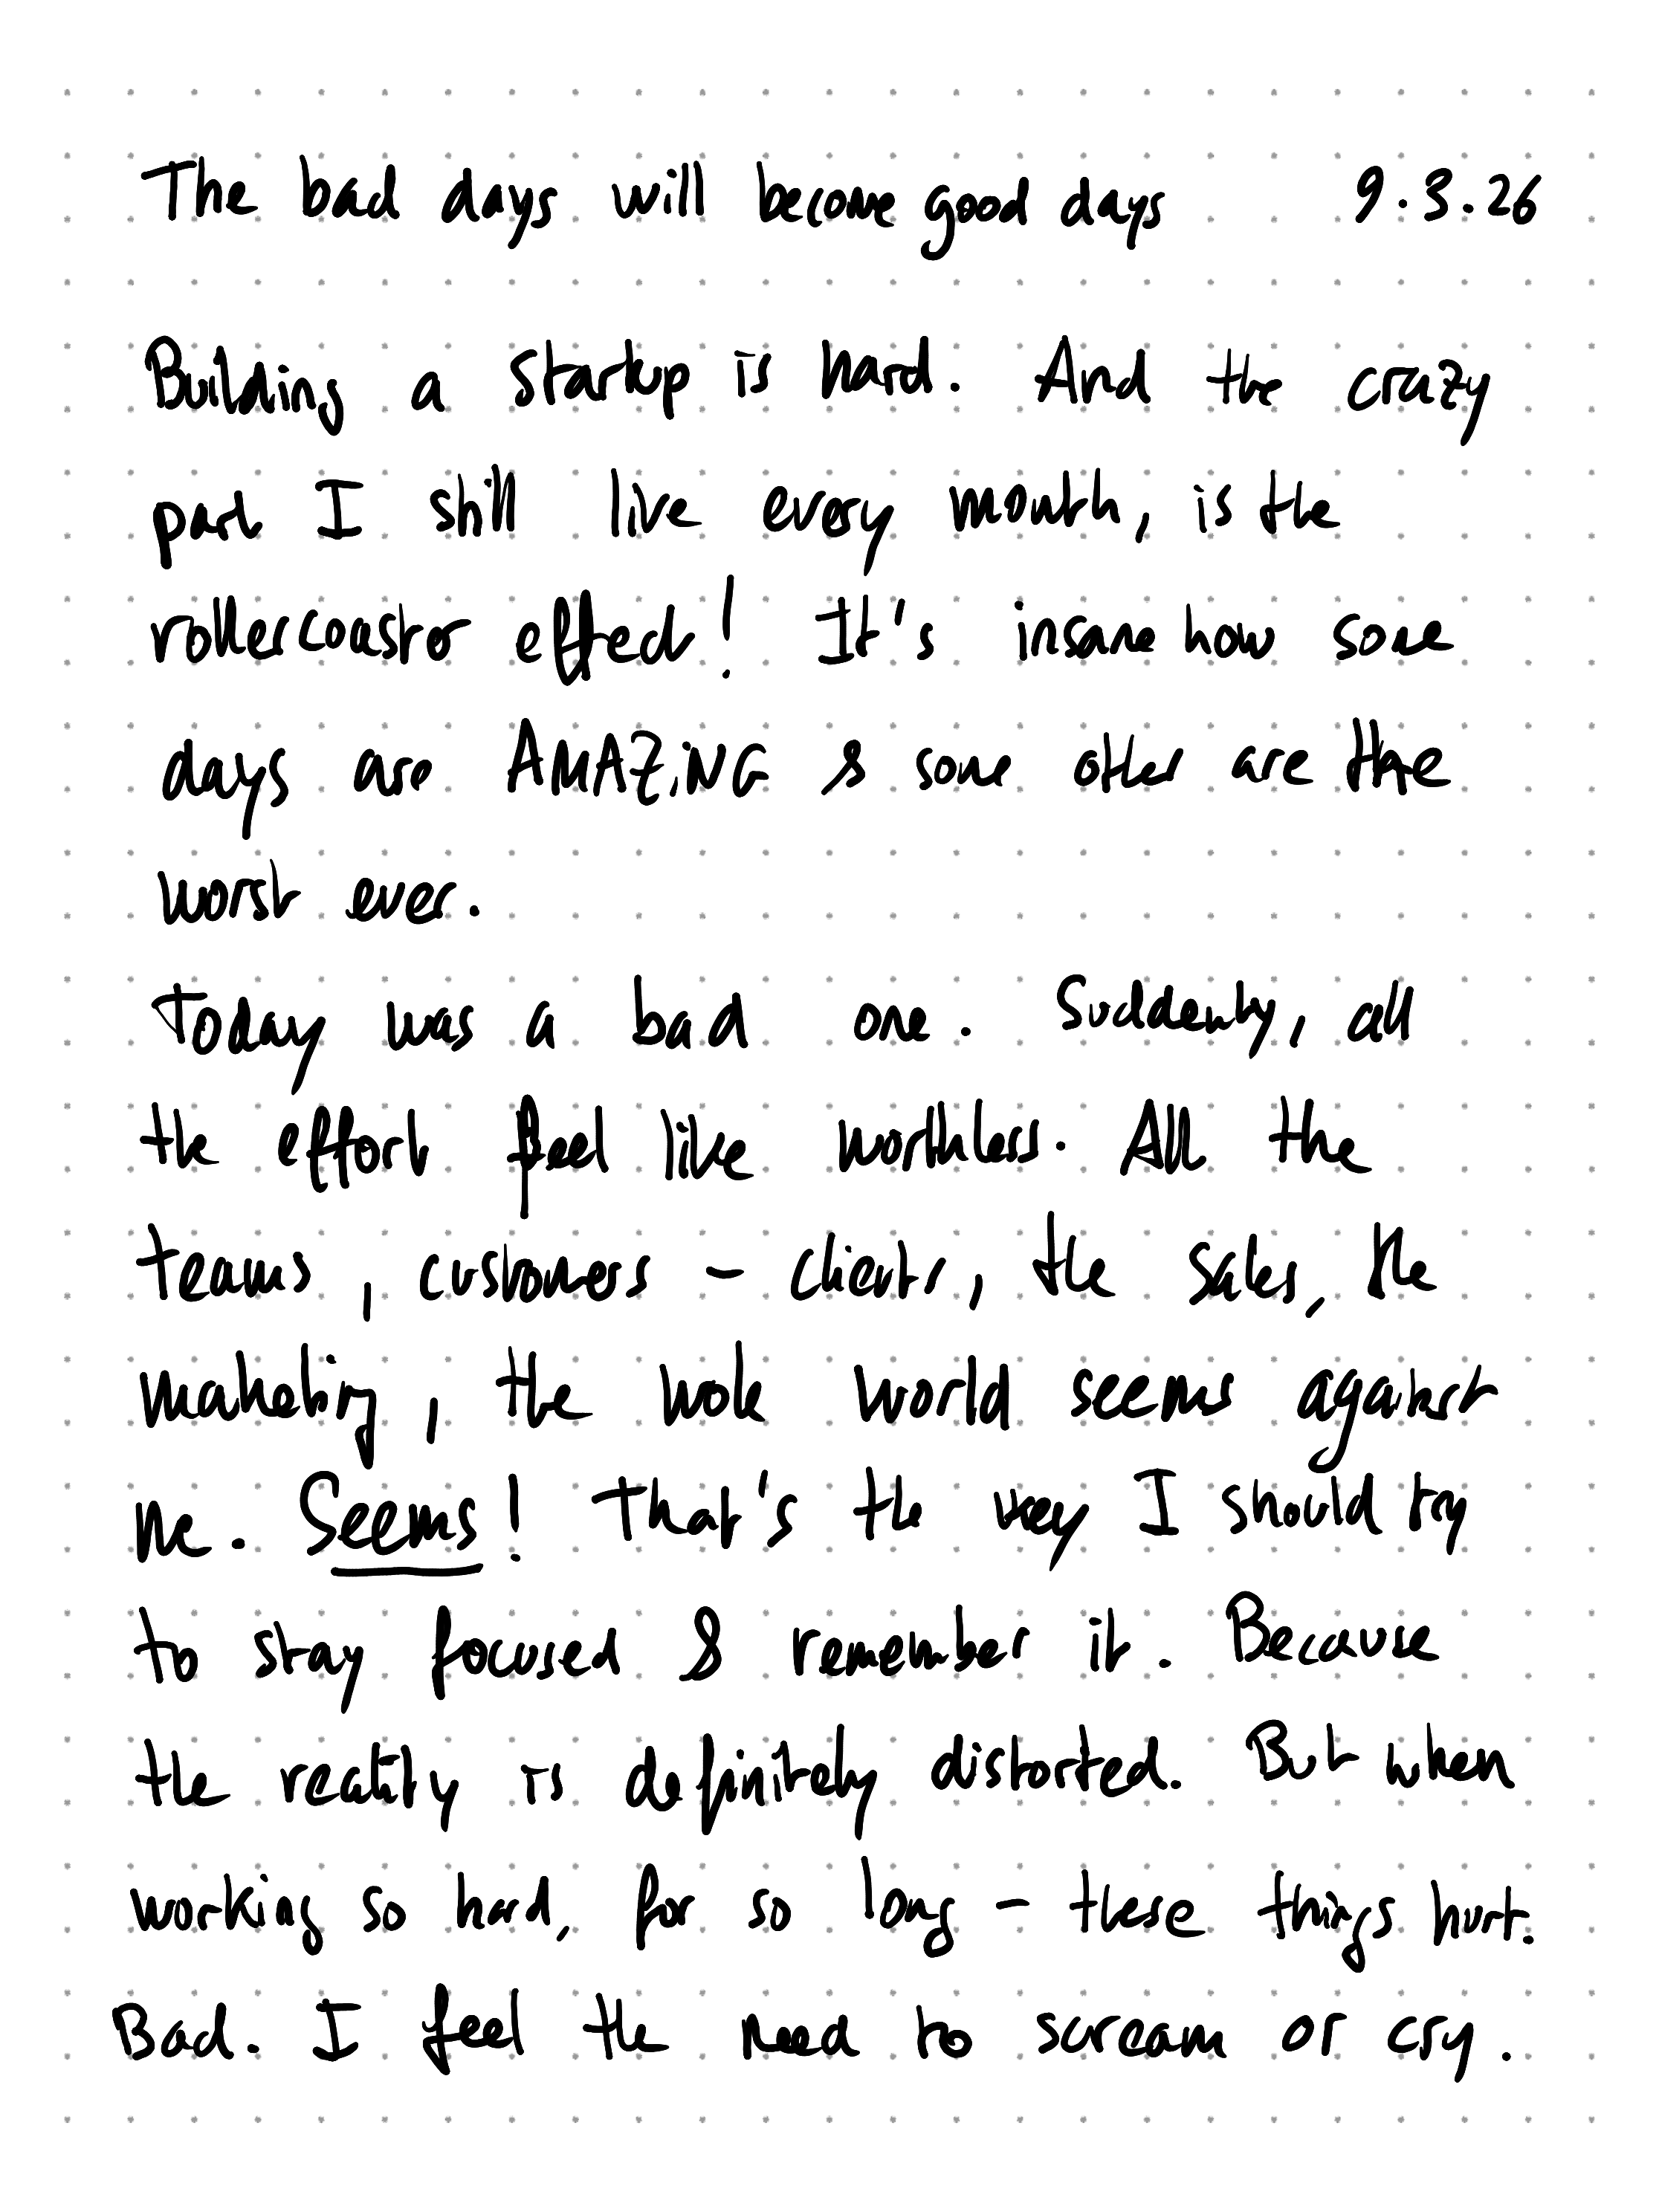 The bad days will become good days 9.3.26
Building a startup is hard. And the crazy
part I still live every month, is the
rollercoaster effect! It's insane how some
days are AMAZiNG & some other are the
worst ever.
Today was a bad one. Suddenly, all
the effort feel like worthless. All the
teams, customers - clients, the sales, the
marketing, the wole world seems against
me. Seems! That's the key I should try
to stay focused & remember it. Because
the reality is definitely distorted. But when
working so hard, for so long - these things hurt.
Bad. I feel the need to scream or cry.